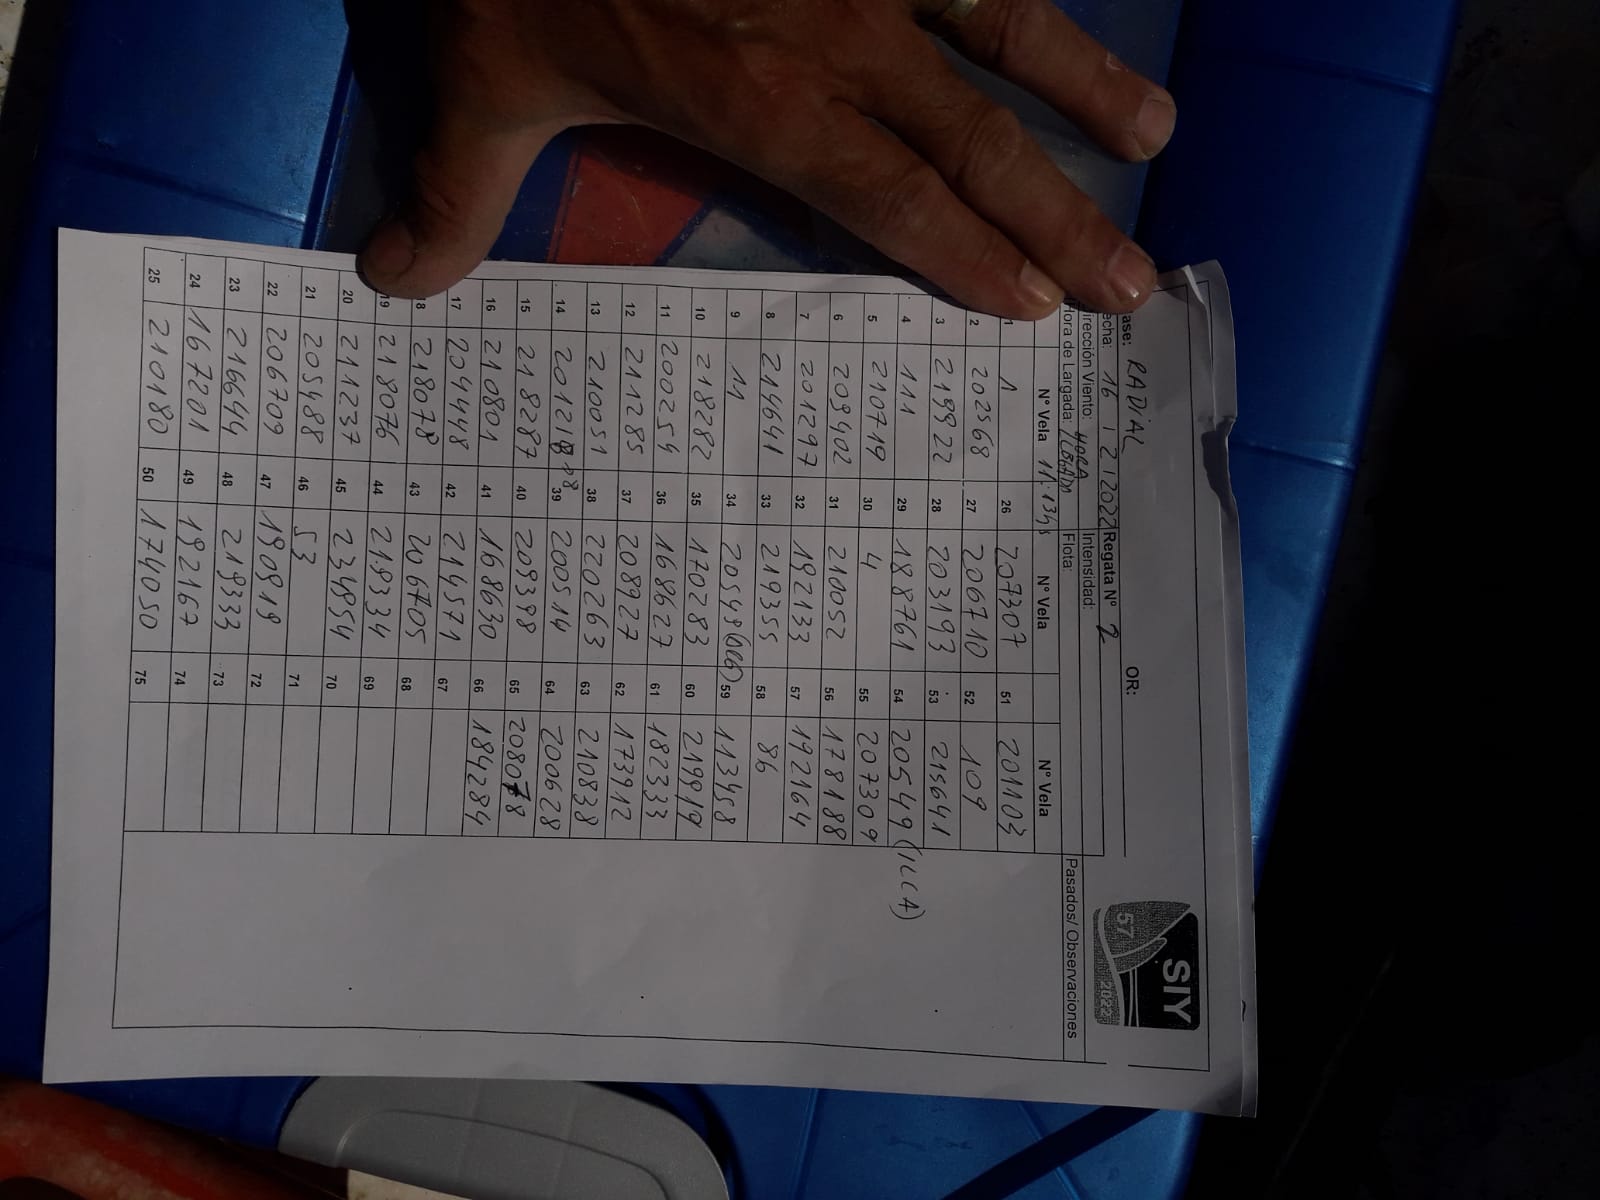 SIY
57
2022
ase: RADIAL OR:
echa: 16 / 2 / 2022 Regata Nº 2
irección Viento: HORA Intensidad:
Hora de Largada: LLEGADA Flota: Pasados/ Observaciones
Nº Vela 11:13hs Nº Vela Nº Vela
1 1 26 207307 51 201103
2 202568 27 206710 52 109
3 219922 28 203193 53 215641
4 111 29 188761 54 20549 (ILCA)
5 210719 30 4 55 207309
6 209402 31 210052 56 178188
7 201297 32 192133 57 192164
8 214641 33 219355 58 86
9 11 34 20549 59 113458
10 218282 35 170283 60 219919
11 200254 36 168627 61 182333
12 211285 37 208927 62 173912
13 210051 38 220263 63 210838
14 39 200514 64 200628
15 218287 40 209398 65 208078
16 210801 41 168630 66 184284
17 204448 42 214571 67
18 218078 43 206705 68
19 218076 44 219334 69
20 211237 45 234954 70
21 205488 46 53 71
22 206709 47 190919 72
23 216644 48 219333 73
24 167201 49 192167 74
25 210180 50 174050 75